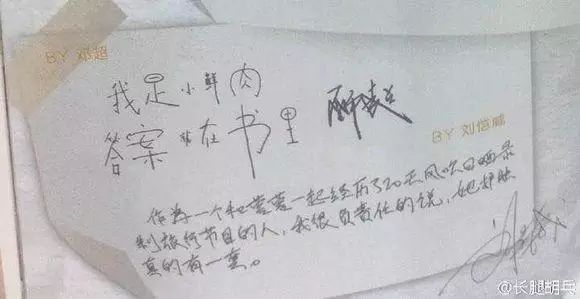 BY 邓超
我是小鲜肉
答案就在书里
BY 刘恺威
作为一个和蕾蕾一起经历了20天风吹日晒录
制旅行节目的人，我很负责任的说，她护肤
真的有一套。
@长腿胡兵